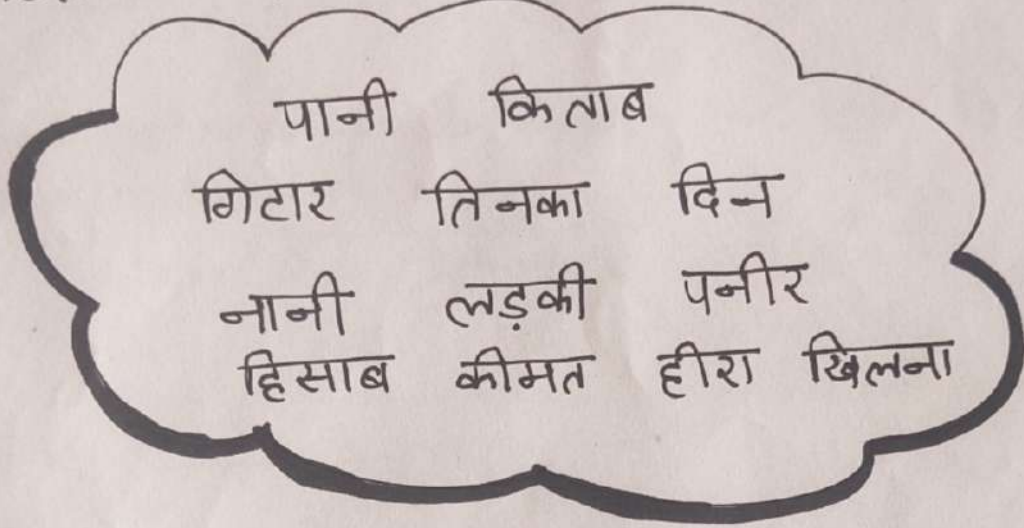 पानी किताब
गिटार तिनका दिन
नानी लड़की पनीर
हिसाब कीमत हीरा खिलना